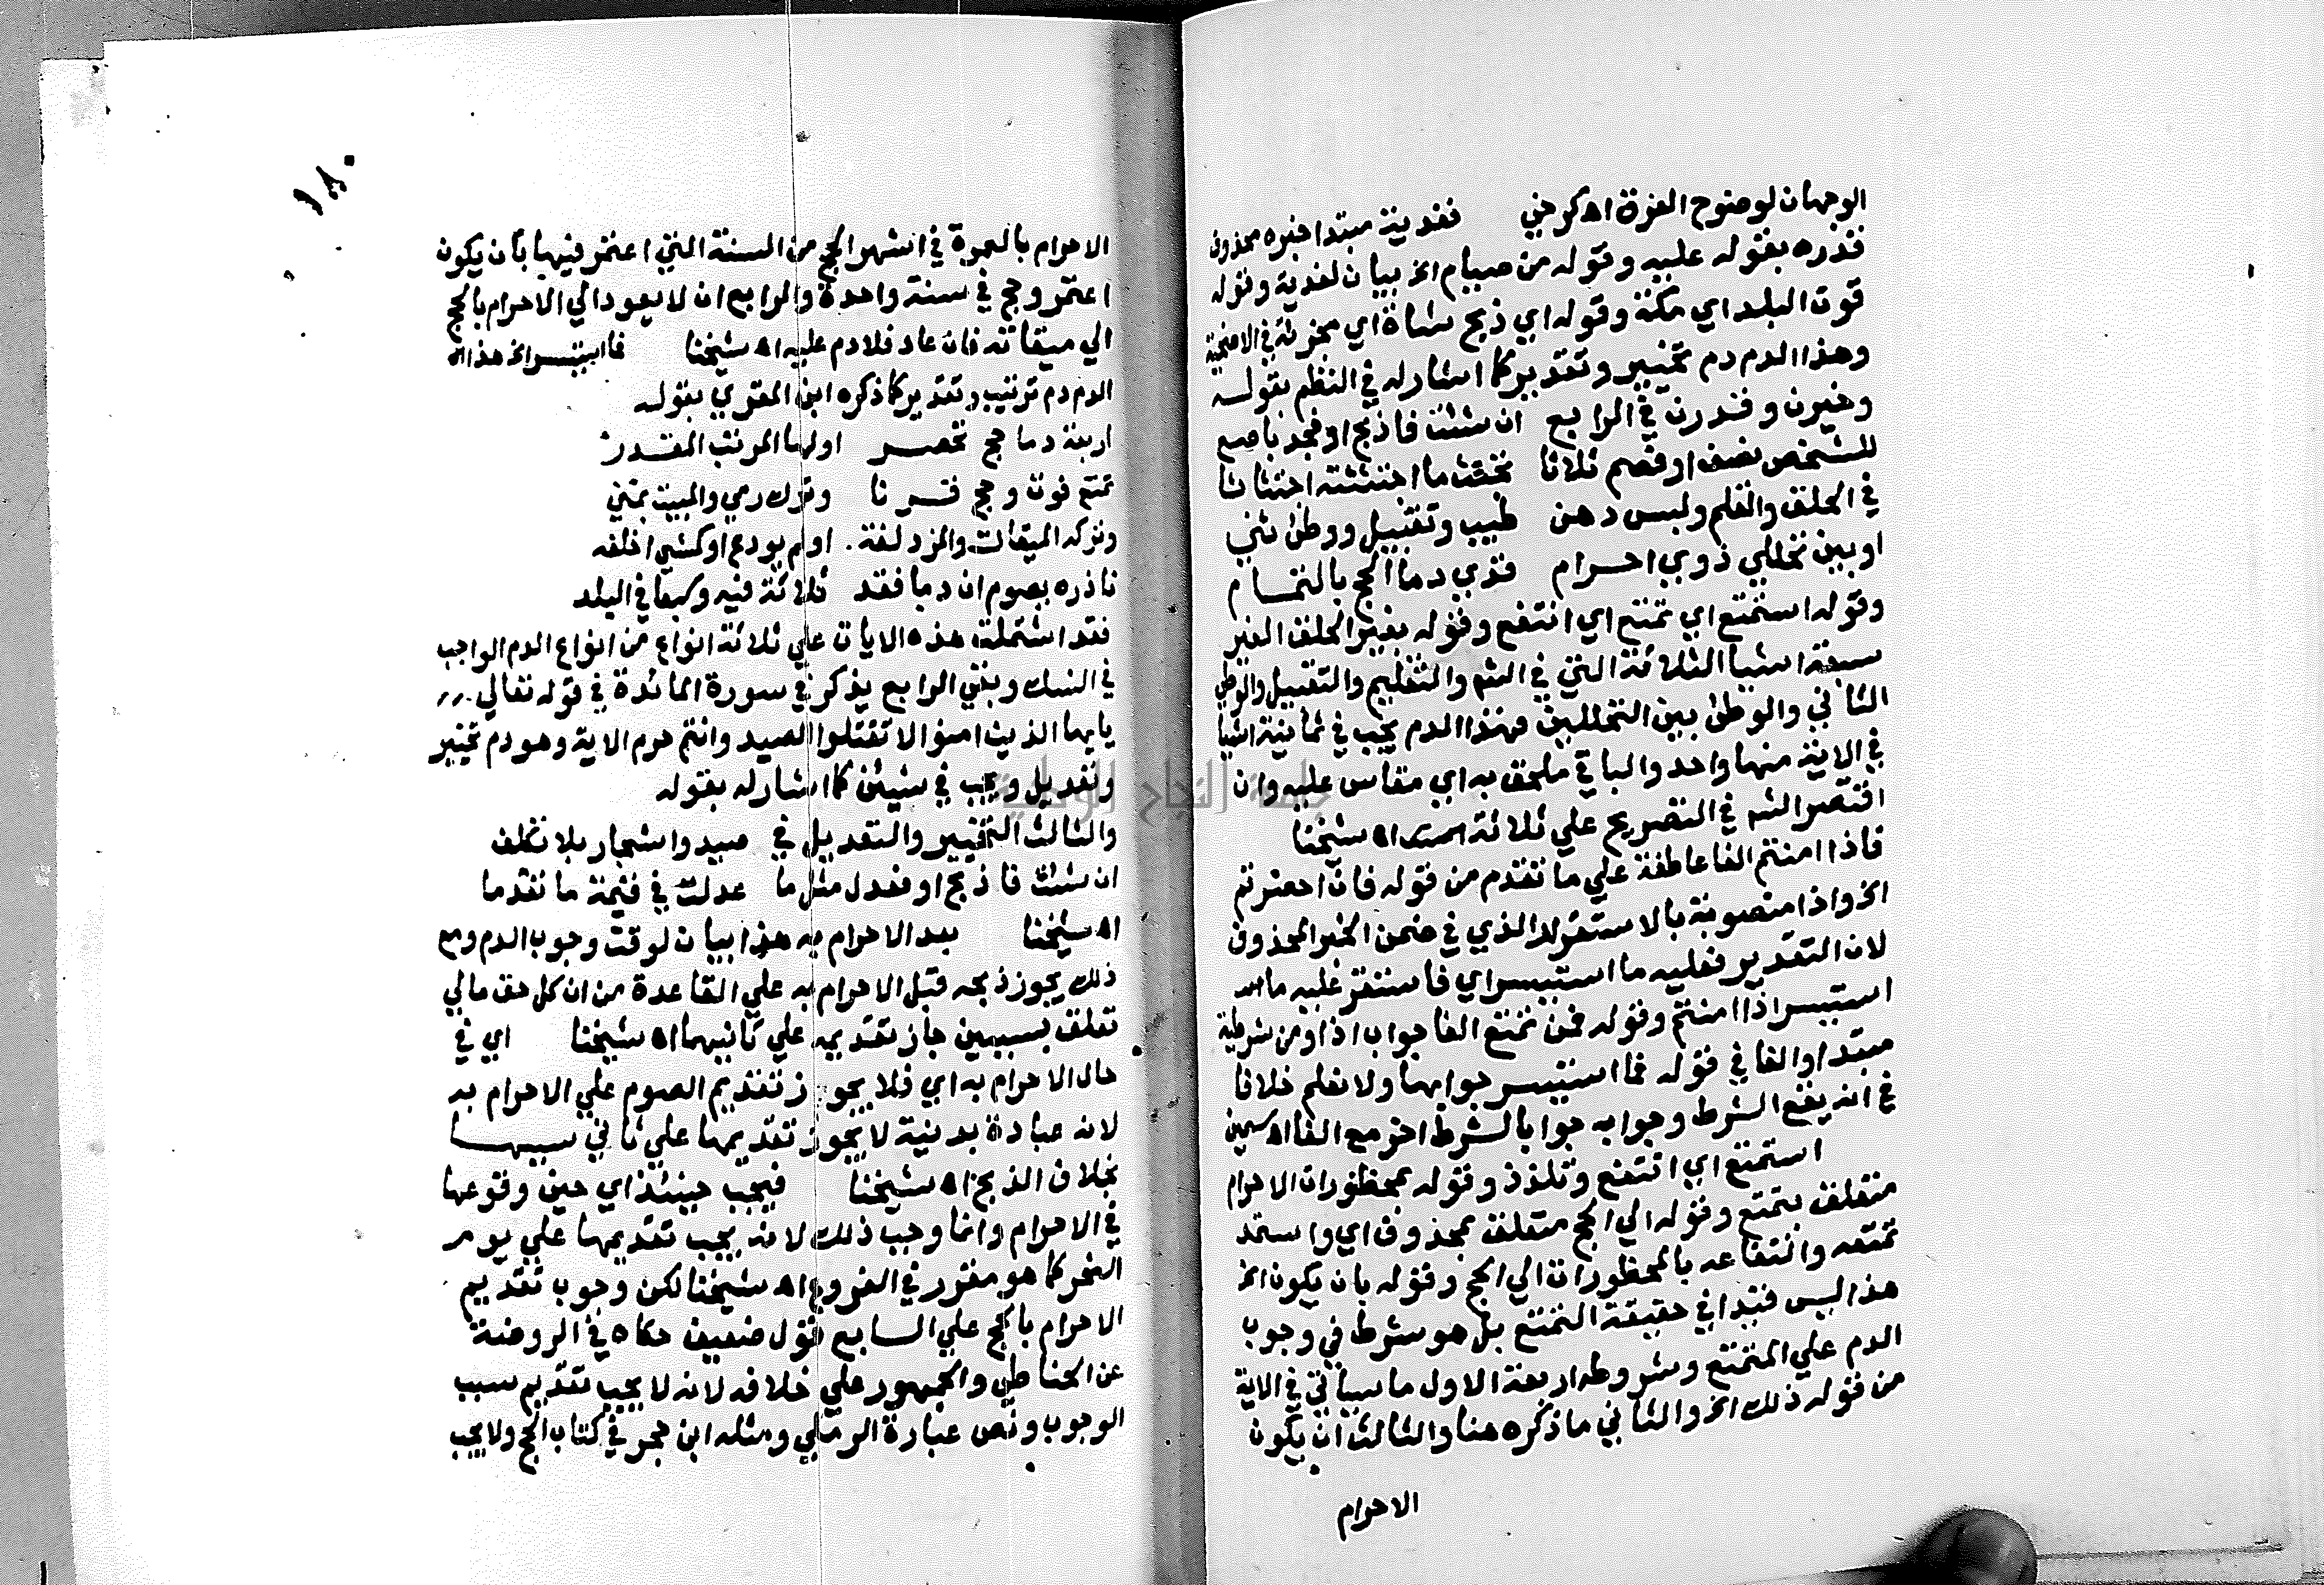 الوجهان لوضوح الفرق اه كرخي ففدية مبتدا خبره محذوف
قدره بقوله عليه وقوله من صيام الخ بيان لفدية وقوله
قوت البلد اي مكة وقوله اي ذبح شاة اي مجزئة في الاضحية
وهذا الدم دم تخيير وتقدير كما اشار له في النظم بقوله
وخيرن وقدرن في الرابع ان شئت فاذبح او فجد باصع
للشخص نصف او فصم ثلاثا تجتث ما اجتثثته اجتثاثا
في الحلق والقلم ولبس دهن طيب وتقبيل ووطئ ثني
او بين تحللي ذوي احرام فذي دما الحج بالتمام
وقوله استمتع اي تمتع اي انتفع وقوله بغير الحلق الغير
سبعة اشيا الثلاثة التي في الشم والتقليم والتقبيل والوطئ
الثاني والوطئ بين التحللين فهذا الدم يجب في ثمانية اشيا
في الاية منها واحد والباقي ملحق به اي مقاس عليه وان
اقتصر الشم في التصريح علي ثلاثة اه شيخنا
فاذا امنتم الفا عاطفة علي ما تقدم من قوله فان احصرتم
الخ واذا منصوبة بالاستقرار الذي في ضمن الخبر المحذوف
لان التقدير فعليه ما استيسر اي فاستقر عليه ما
استيسر اذا امنتم وقوله فمن تمتع الفا جواب اذا ومن شرطية
مبتدا والفا في قوله فما استيسر جوابها ولا نعلم خلافا
في انه يقع الشرط وجوابه جوابا لشرط اخر مع الفا اه سمين
استمتع اي انتفع وتلذذ وقوله بمحظورات الاحرام
متعلق بتمتع وقوله الي الحج متعلق بمحذوف اي واستمد
تمتعه وانتفاعه بالمحظورات الي الحج وقوله بان يكون الخ
هذا ليس قيدا في حقيقة التمتع بل هو شرط في وجوب
الدم علي المتمتع وشروطه اربعة الاول ما سياتي في الاية
من قوله ذلك الخ والثاني ما ذكره هنا والثالث ان يكون
الاحرام
١٨٠
الاحرام بالعمرة في اشهر الحج من السنة التي اعتمر فيها بان يكون
اعتمر وحج في سنة واحدة والرابع ان لا يعود الي الاحرام بالحج
الي ميقاته فان عاد فلا دم عليه اه شيخنا فما استيسر الخ هذا
الدم دم ترتيب وتقدير كما ذكره ابن المقري بقوله
اربعة دما حج تحصر اولها المرتب المقدر
تمتع فوت وحج قرنا وترك رمي والمبيت بمني
وتركه الميقات والمزدلفة او لم يودع او كمشي اخلفه
ناذره يصوم ان دما فقد ثلاثة فيه وسبعا في البلد
فقد اشتملت هذه الايات علي ثلاثة انواع من انواع الدم الواجب
في النسك وبقي الرابع يذكر في سورة المائدة في قوله تعالي
يايها الذين امنوا لا تقتلوا الصيد وانتم حرم الاية وهو دم تخيير
وتعديل ويجب في شيئين كما اشار له بقوله
والثالث التخيير والتعديل في صيد واشجار بلا تكلف
ان شئت فاذبح او فعدل مثل ما عدلت في قيمة ما تقدما
اه شيخنا بعد الاحرام به هذا بيان لوقت وجوب الدم ومع
ذلك يجوز ذبحه قبل الاحرام به علي القاعدة من ان كل حق مالي
تعلق بسببين جاز تقديمه علي ثانيهما اه شيخنا اي في
حال الاحرام به اي فلا يجوز تقديم الصوم علي الاحرام به
لانه عبادة بدنية لا يجوز تقديمها علي ثاني سببها
بخلاف الذبح اه شيخنا فيجب حينئذ اي حين وقوعها
في الاحرام وانما وجب ذلك لانه يجب تقديمها علي يوم
النحر كما هو مقرر في الفروع اه شيخنا لكن وجوب تقديم
الاحرام بالحج علي السابع قول ضعيف حكاه في الروضة
عن الحناطي والجمهور علي خلافه لانه لا يجب تقديم سبب
الوجوب ونص عبارة الرملي ومثله ابن حجر في كتاب الحج ولا يجب
جامعة النجاح الوطنية